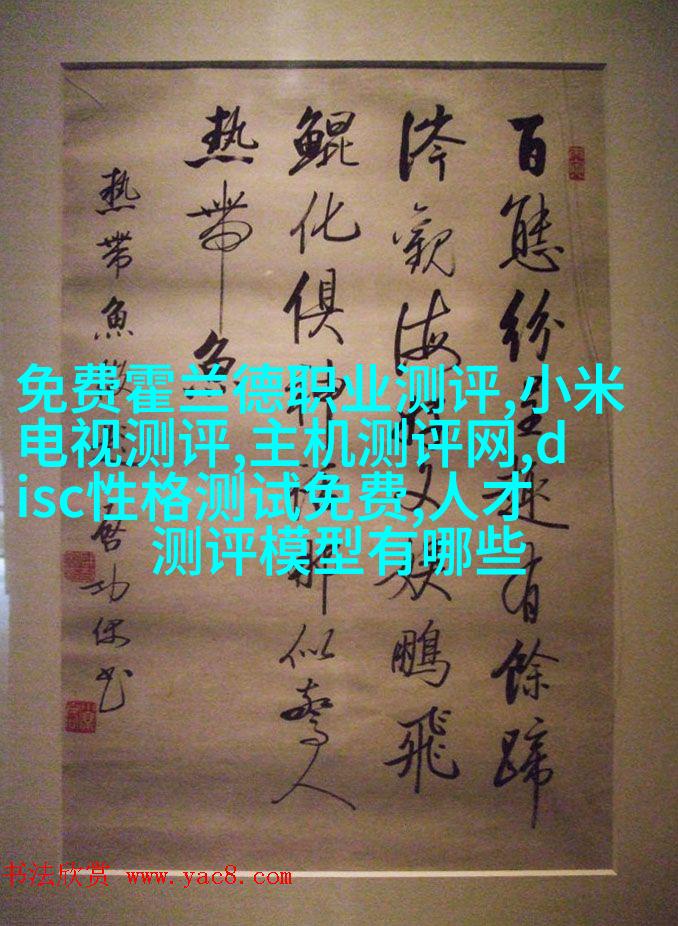 百態紛呈趣有餘蹄
涔觀海又鵬飛
鯤化俱神話那似驚人
熱帶魚
熱帶魚啓功
免费霍兰德职业测评,小米
电视测评,主机测评网,d
isc性格测试免费,人才
测评模型有哪些
书法欣赏 www.yac8.com